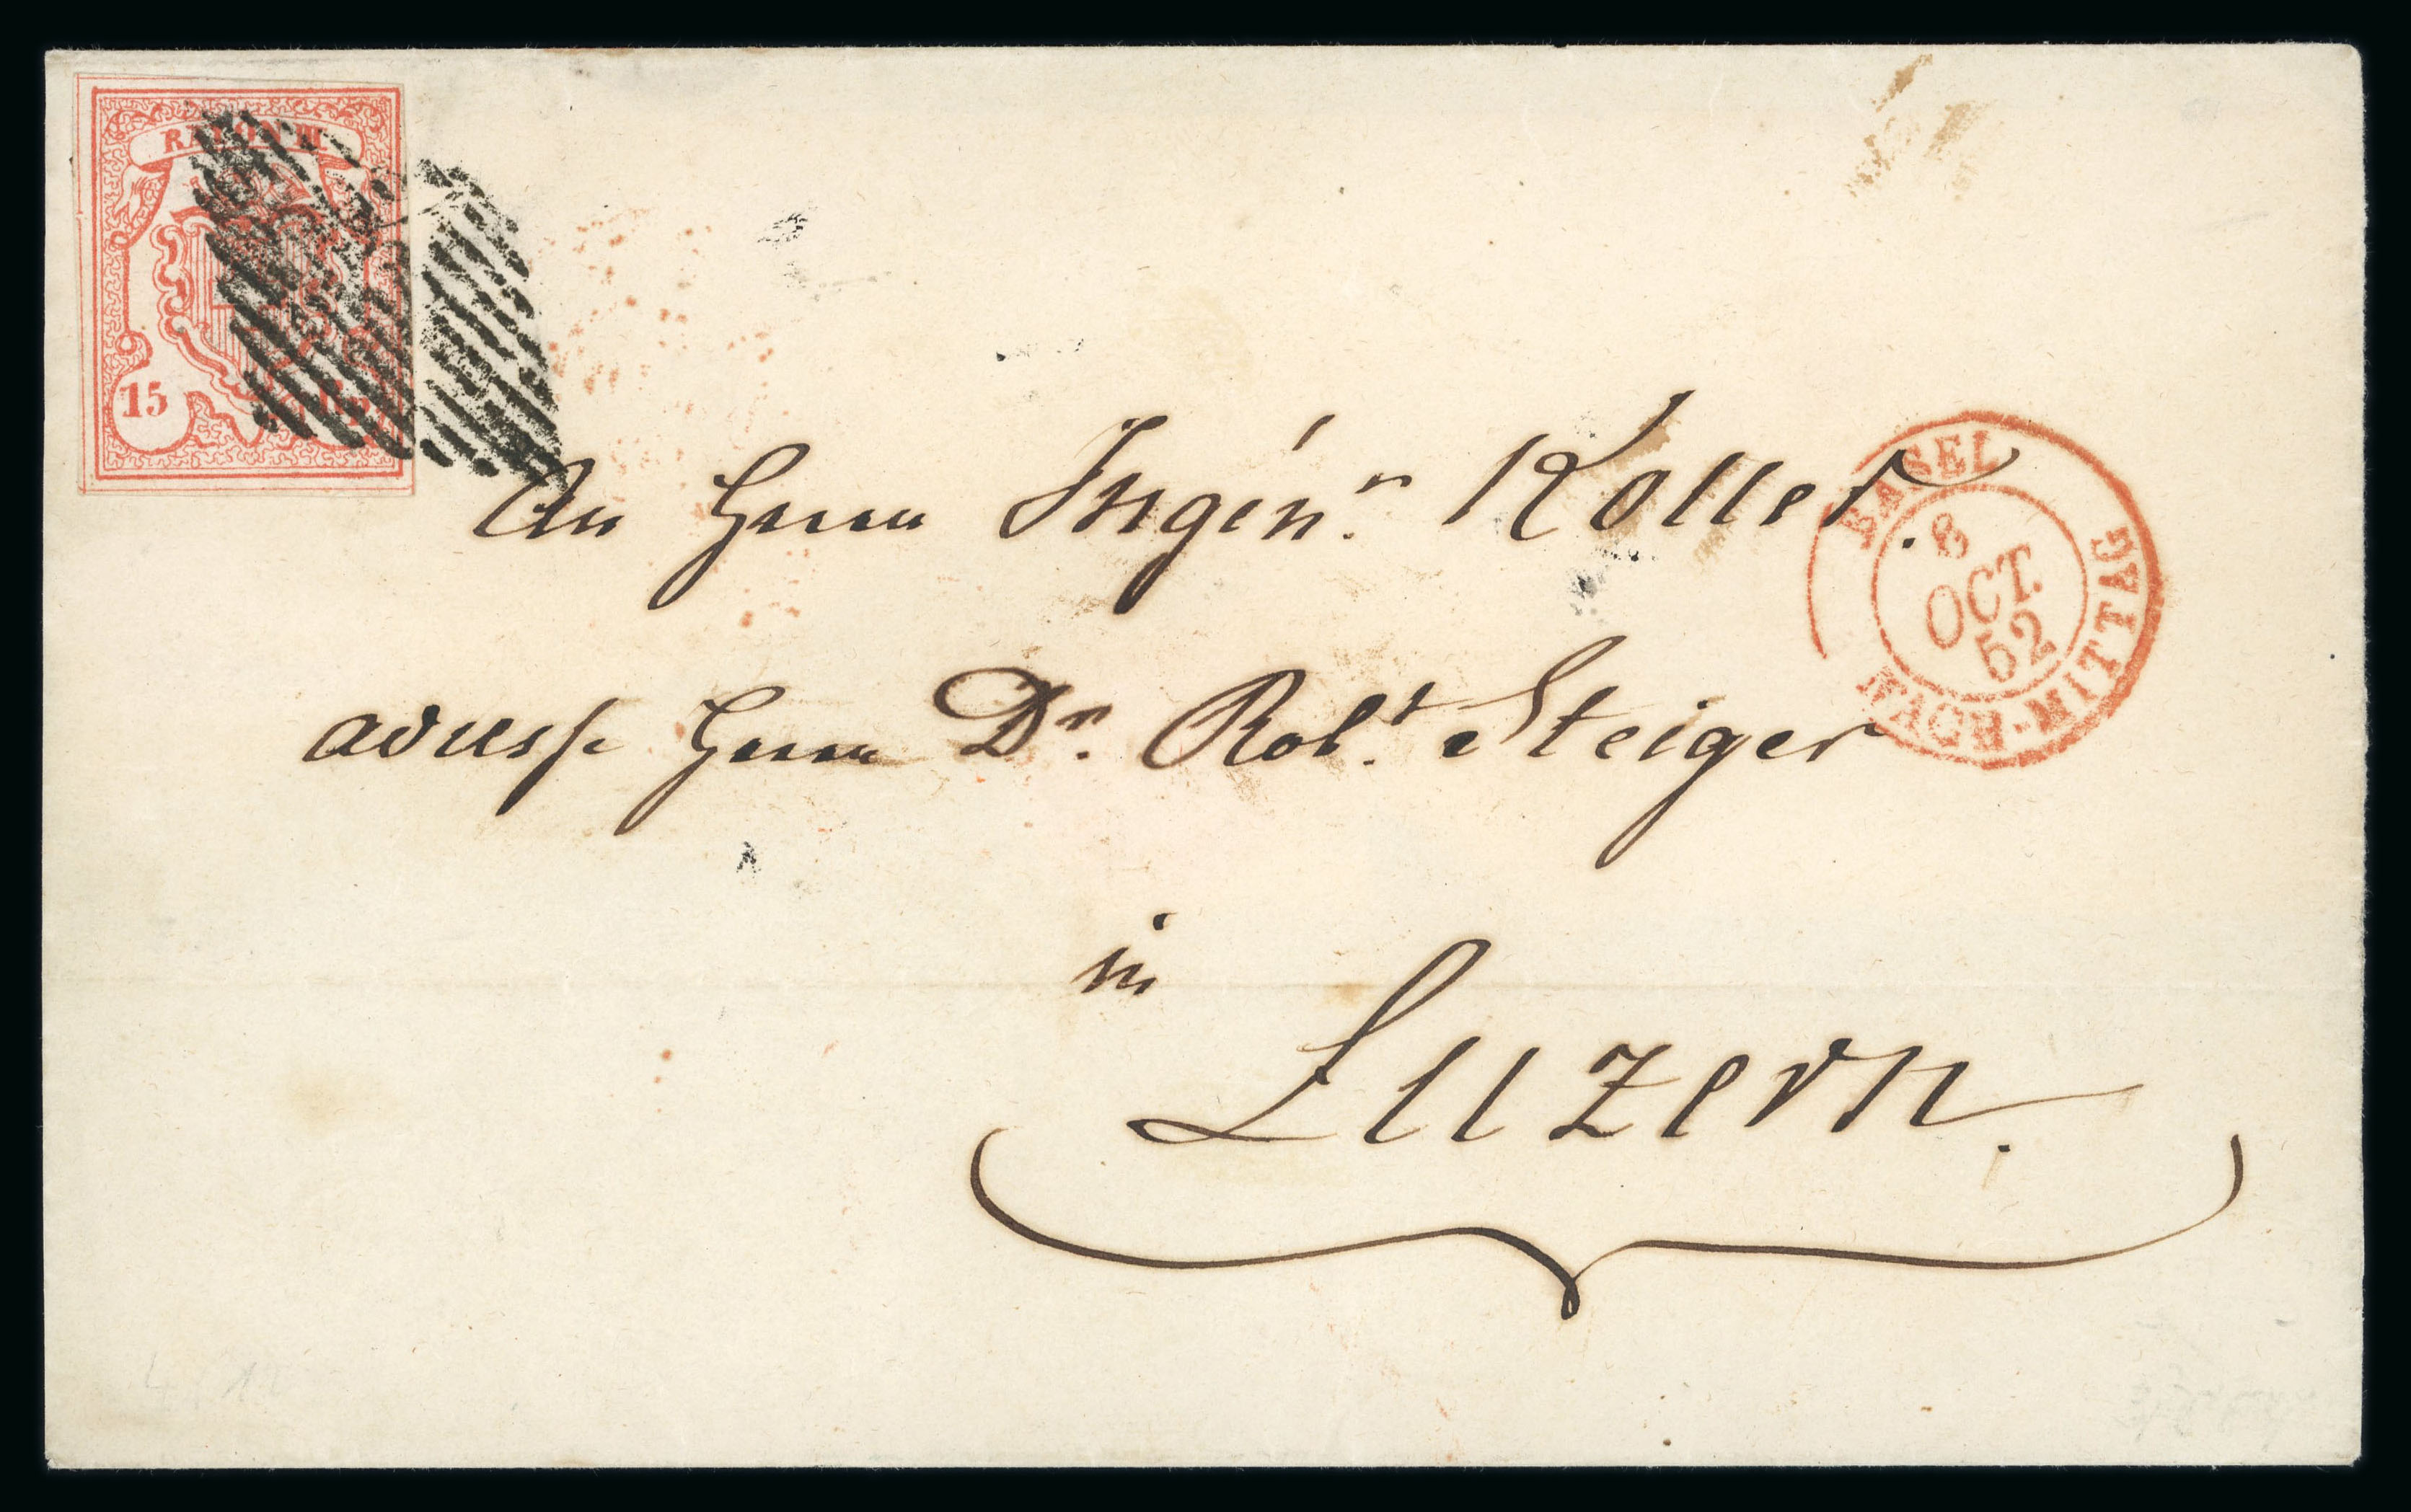 RAYON III
15
An Herrn Ingenr. Koller.
BASEL
8
OCT.
52
NACH-MITTAG
adresse Herrn Dr. Robt. Steiger
in
Luzern.